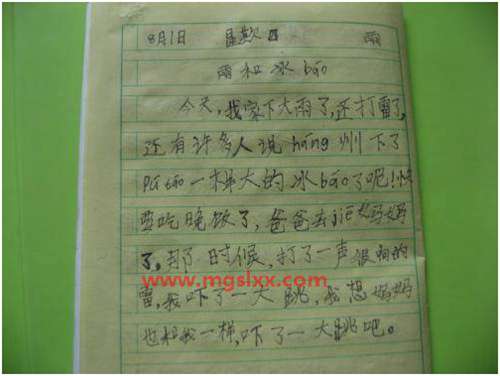 8月1日 星期日 雨
雨和冰báo
今天,我家下大雨了,还打雷了,
还有许多人说háng州下了
Pú táo一样大的冰báo了呢!快
要吃晚饭了,爸爸去jiē妈妈
了,那时候,打了一声很响的
www.mgslxx.com
雷,我吓了一大跳,我想妈妈
也和我一样,吓了一大跳吧。